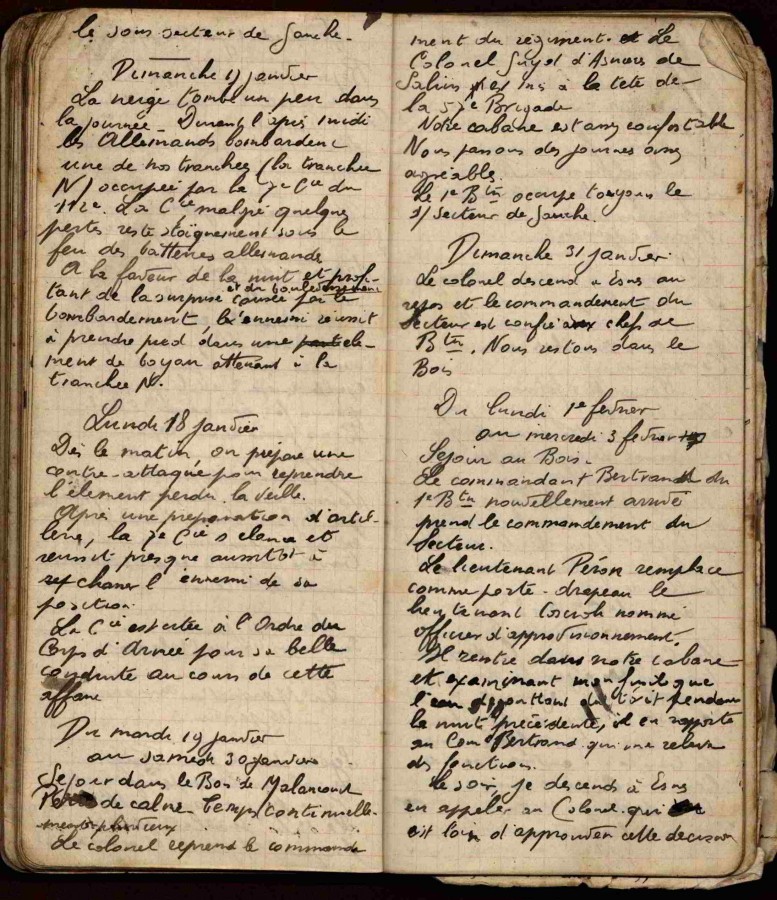 le sous secteur de Gauche.
Dimanche 17 janvier
La neige tombe un peu dans
la journée. Durant l'après midi
les Allemands bombardent
une de nos tranchées (la tranchée
N) occupée par la 7e Cie du
112e. La Cie malgré quelques
pertes reste stoïquement sous le
feu des batteries allemande
A la faveur de la nuit et profi-
tant de la surprise causée par le
et du bouleversement
bombardement, l'ennemi réussit
à prendre pied dans une élé-
ment de boyau attenant à la
tranchée N.
Lundi 18 janvier
Dès le matin, on prépare une
contre-attaque pour reprendre
l'élément perdu la veille.
Après une préparation d'artil-
lerie, la 7e Cie s'élance et
réussit presque aussitôt à
chasser l'ennemi de sa
position.
La Cie est citée à l'Ordre du
Corps d'Armée pour sa belle
conduite au cours de cette
affaire
Du mardi 19 janvier
au samedi 30 janvier
Séjour dans le Bois de Malancourt
de calme. Temps continuelle-
ment pluvieux
Le colonel reprend le commande
ment du régiment. Le
Colonel Guyot d'Asnières de
Salins est mis à la tête de
la 57e Brigade
Notre cabane est assez confortable
Nous passons des journées assez
agréables.
Le 1e Btn occupe toujours le
s/ secteur de Gauche.
Dimanche 31 janvier.
Le colonel descend à Esnes au
repos et le commandement du
Secteur est confié aux chefs de
Btn. Nous restons dans le
Bois
Du lundi 1e février
au mercredi 3 février
Séjour au Bois.
Le commandant Bertrand du
1e Btn nouvellement arrivé
prend le commandement du
Secteur.
Le lieutenant Péron remplace
comme porte-drapeau le
lieutenant nommé
officier d'approvisionnement.
Il rentre dans notre cabane
et examinant mon fusil que
l'eau dégouttant du toit pendant
la nuit précédente, il en rapporte
au Com Bertrand qui me relève
des fonctions.
Le soir, je descends à Esnes
en appeler au Colonel qui
est loin d'approuver cette décision